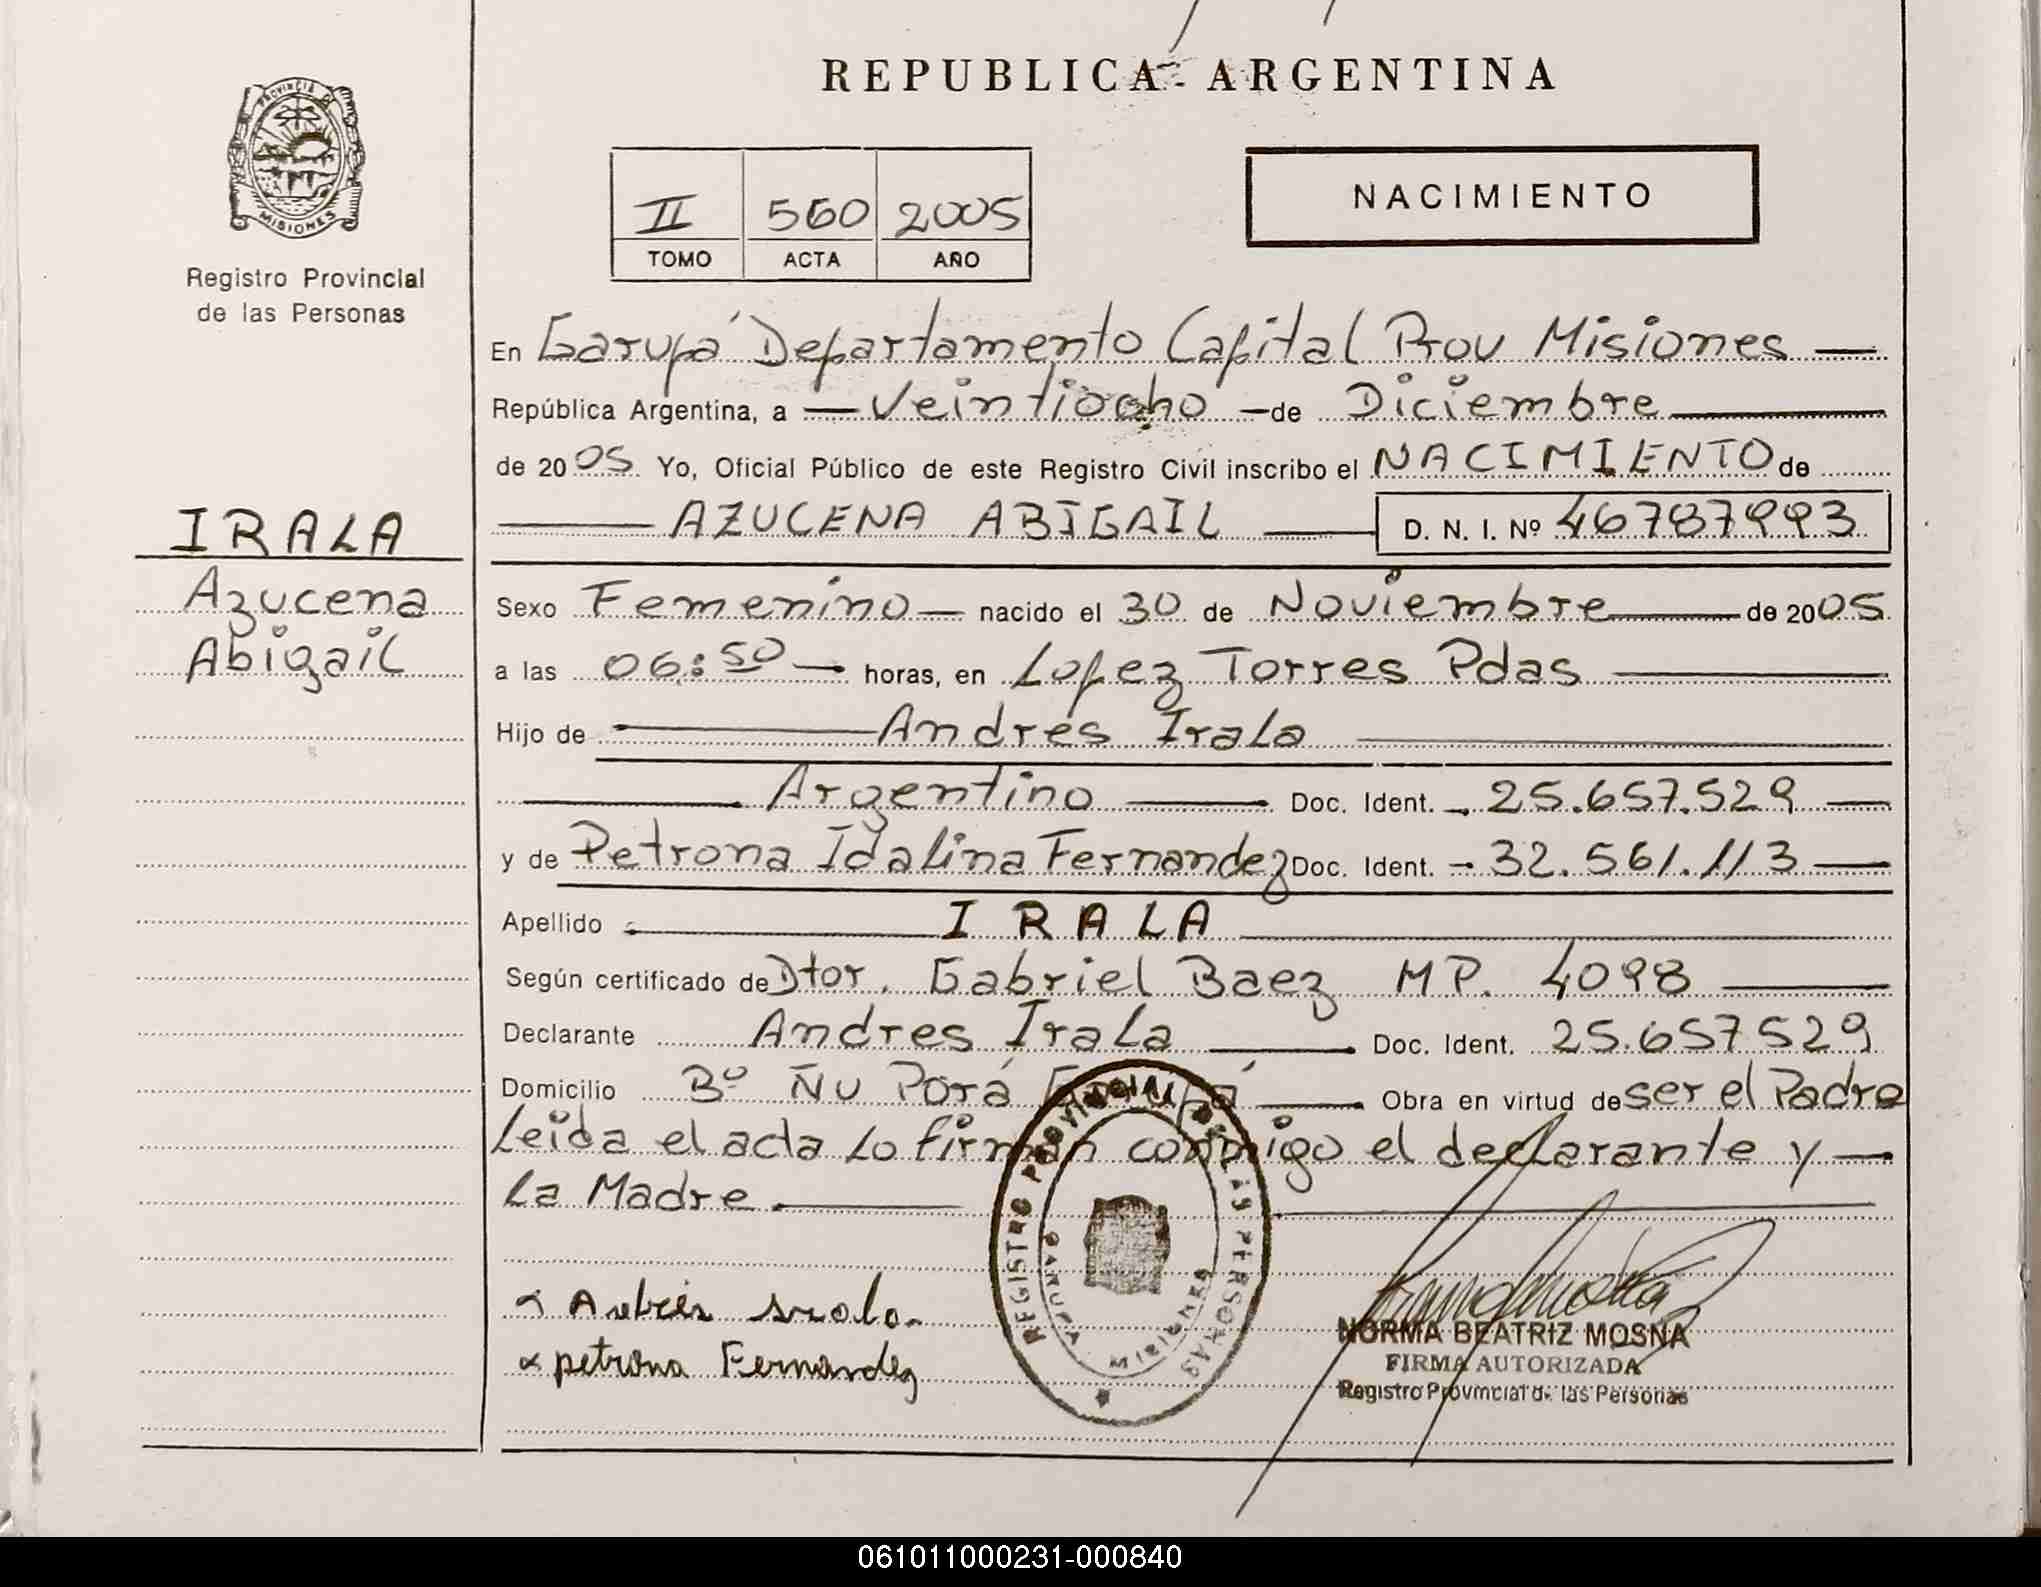 REPUBLICA ARGENTINA
PROVINCIA D
MISIONES
Registro Provincial
de las Personas
II 560 2005
TOMO ACTA AÑO
NACIMIENTO
En Garupá Departamento Capital Prov Misiones —
República Argentina, a — Veintiocho — de Diciembre
de 2005 Yo, Oficial Público de este Registro Civil inscribo el NACIMIENTO de
AZUCENA ABIGAIL D. N. I. Nº 46787993
IRALA
Azucena
Abigail
Sexo Femenino — nacido el 30 de Noviembre de 2005
a las 06:50 horas, en Lopez Torres Pdas
Hijo de Andrés Irala
Argentino Doc. Ident. 25.657.529
y de Petrona Idalina Fernandez Doc. Ident. - 32.561.113
Apellido IRALA
Según certificado de Dtor. Gabriel Baez MP. 4098
Declarante Andres Irala Doc. Ident. 25.657529
Domicilio Bº Ñu Porá Garupá Obra en virtud de ser el Padre
Leida el acta lo firman conmigo el declarante y
La Madre
Andrés irala
petrona Fernandez
REGISTRO PROVINCIAL DE LAS PERSONAS
GARUPA MISIONES
NORMA BEATRIZ MOSNA
FIRMA AUTORIZADA
Registro Provincial de las Personas
061011000231-000840